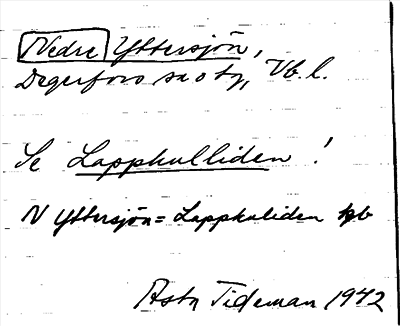 Nedre Yttersjön,
Degerfors sn o tg, Vb. l.
Se Lappkulliden !
N Yttersjön = Lappkuliden
Asta Tideman 1942